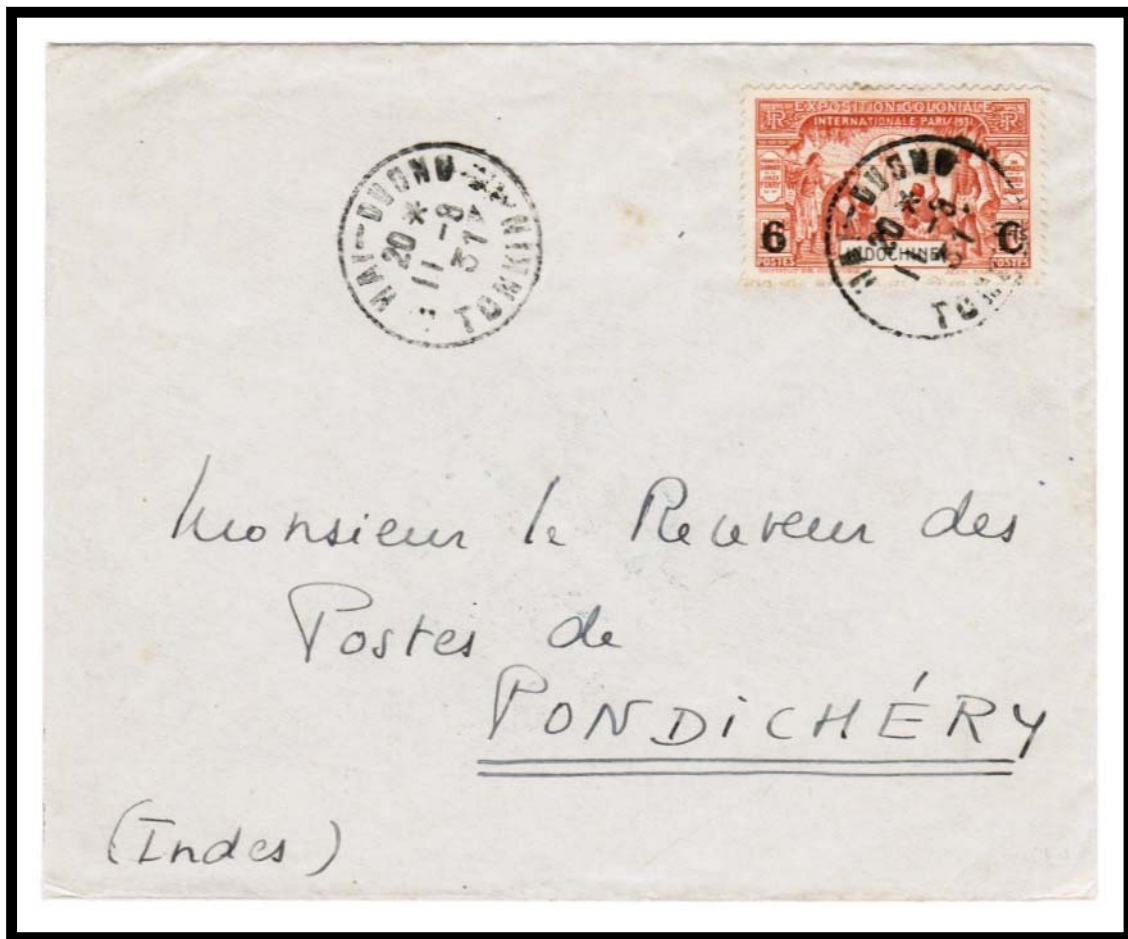 HAI-DUONG TONKIN
20 *
11-8
31
EXPOSITION COLONIALE
INTERNATIONALE PARIS 1931
RF RF
6 C
INDOCHINE
POSTES POSTES
HAI-DUONG TONKIN
20 *
11-8
31
Monsieur le Receveur des
Postes de
PONDICHÉRY
(Indes)